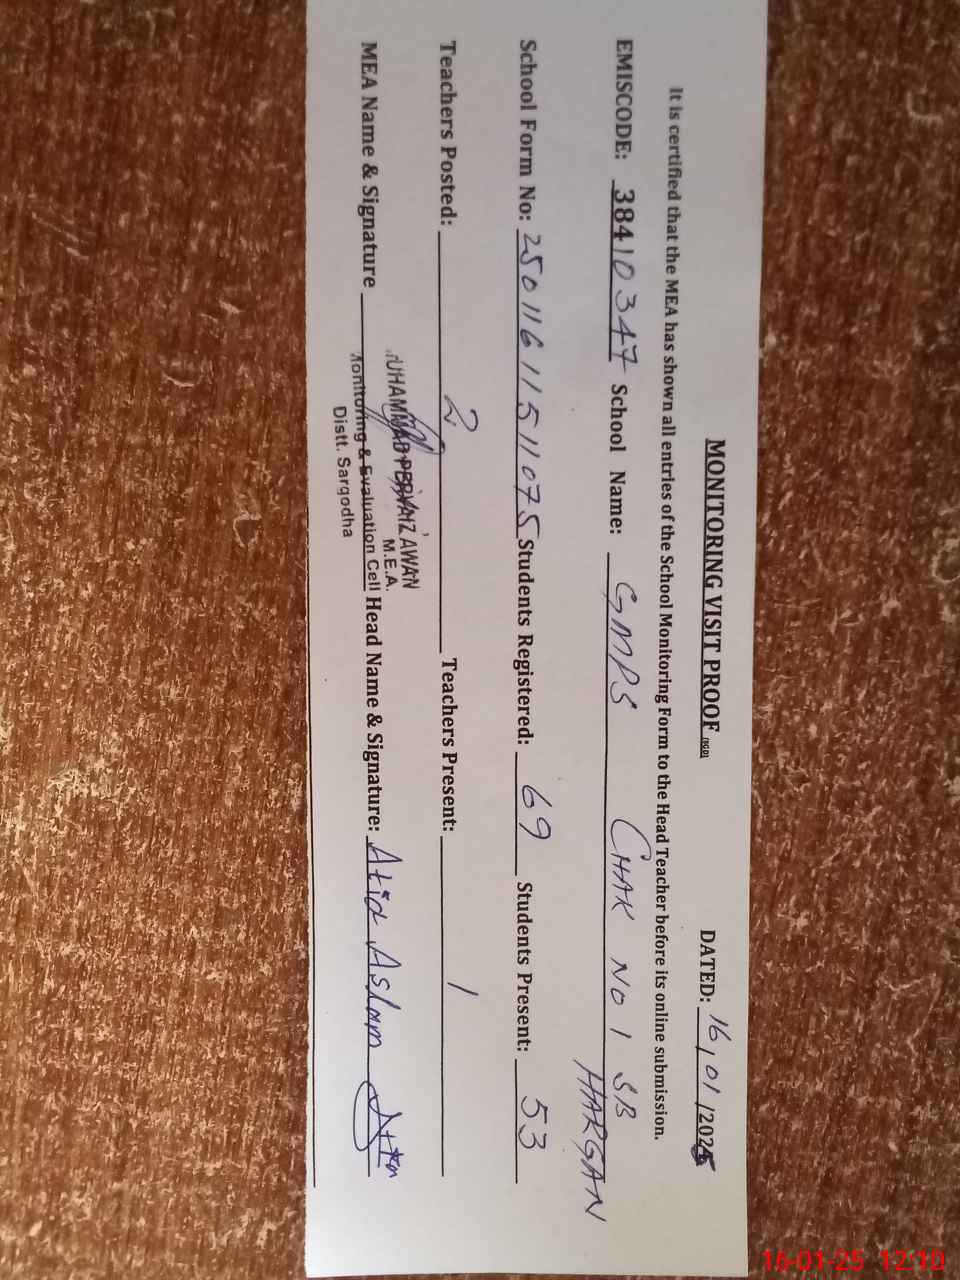 MONITORING VISIT PROOF DATED: 16/01/2025
It is certified that the MEA has shown all entries of the School Monitoring Form to the Head Teacher before its online submission.
EMISCODE: 38410347 School Name: GMPS CHAK NO 1 SB
HARGAN
School Form No: 25011611511075 Students Registered: 69 Students Present: 53
Teachers Posted: 2 Teachers Present: 1
MUHAMMAD PERVAIZ AWAN
M.E.A.
MEA Name & Signature Monitoring & Evaluation Cell Head Name & Signature: Atia Aslam
Distt. Sargodha
16-01-25 12:10